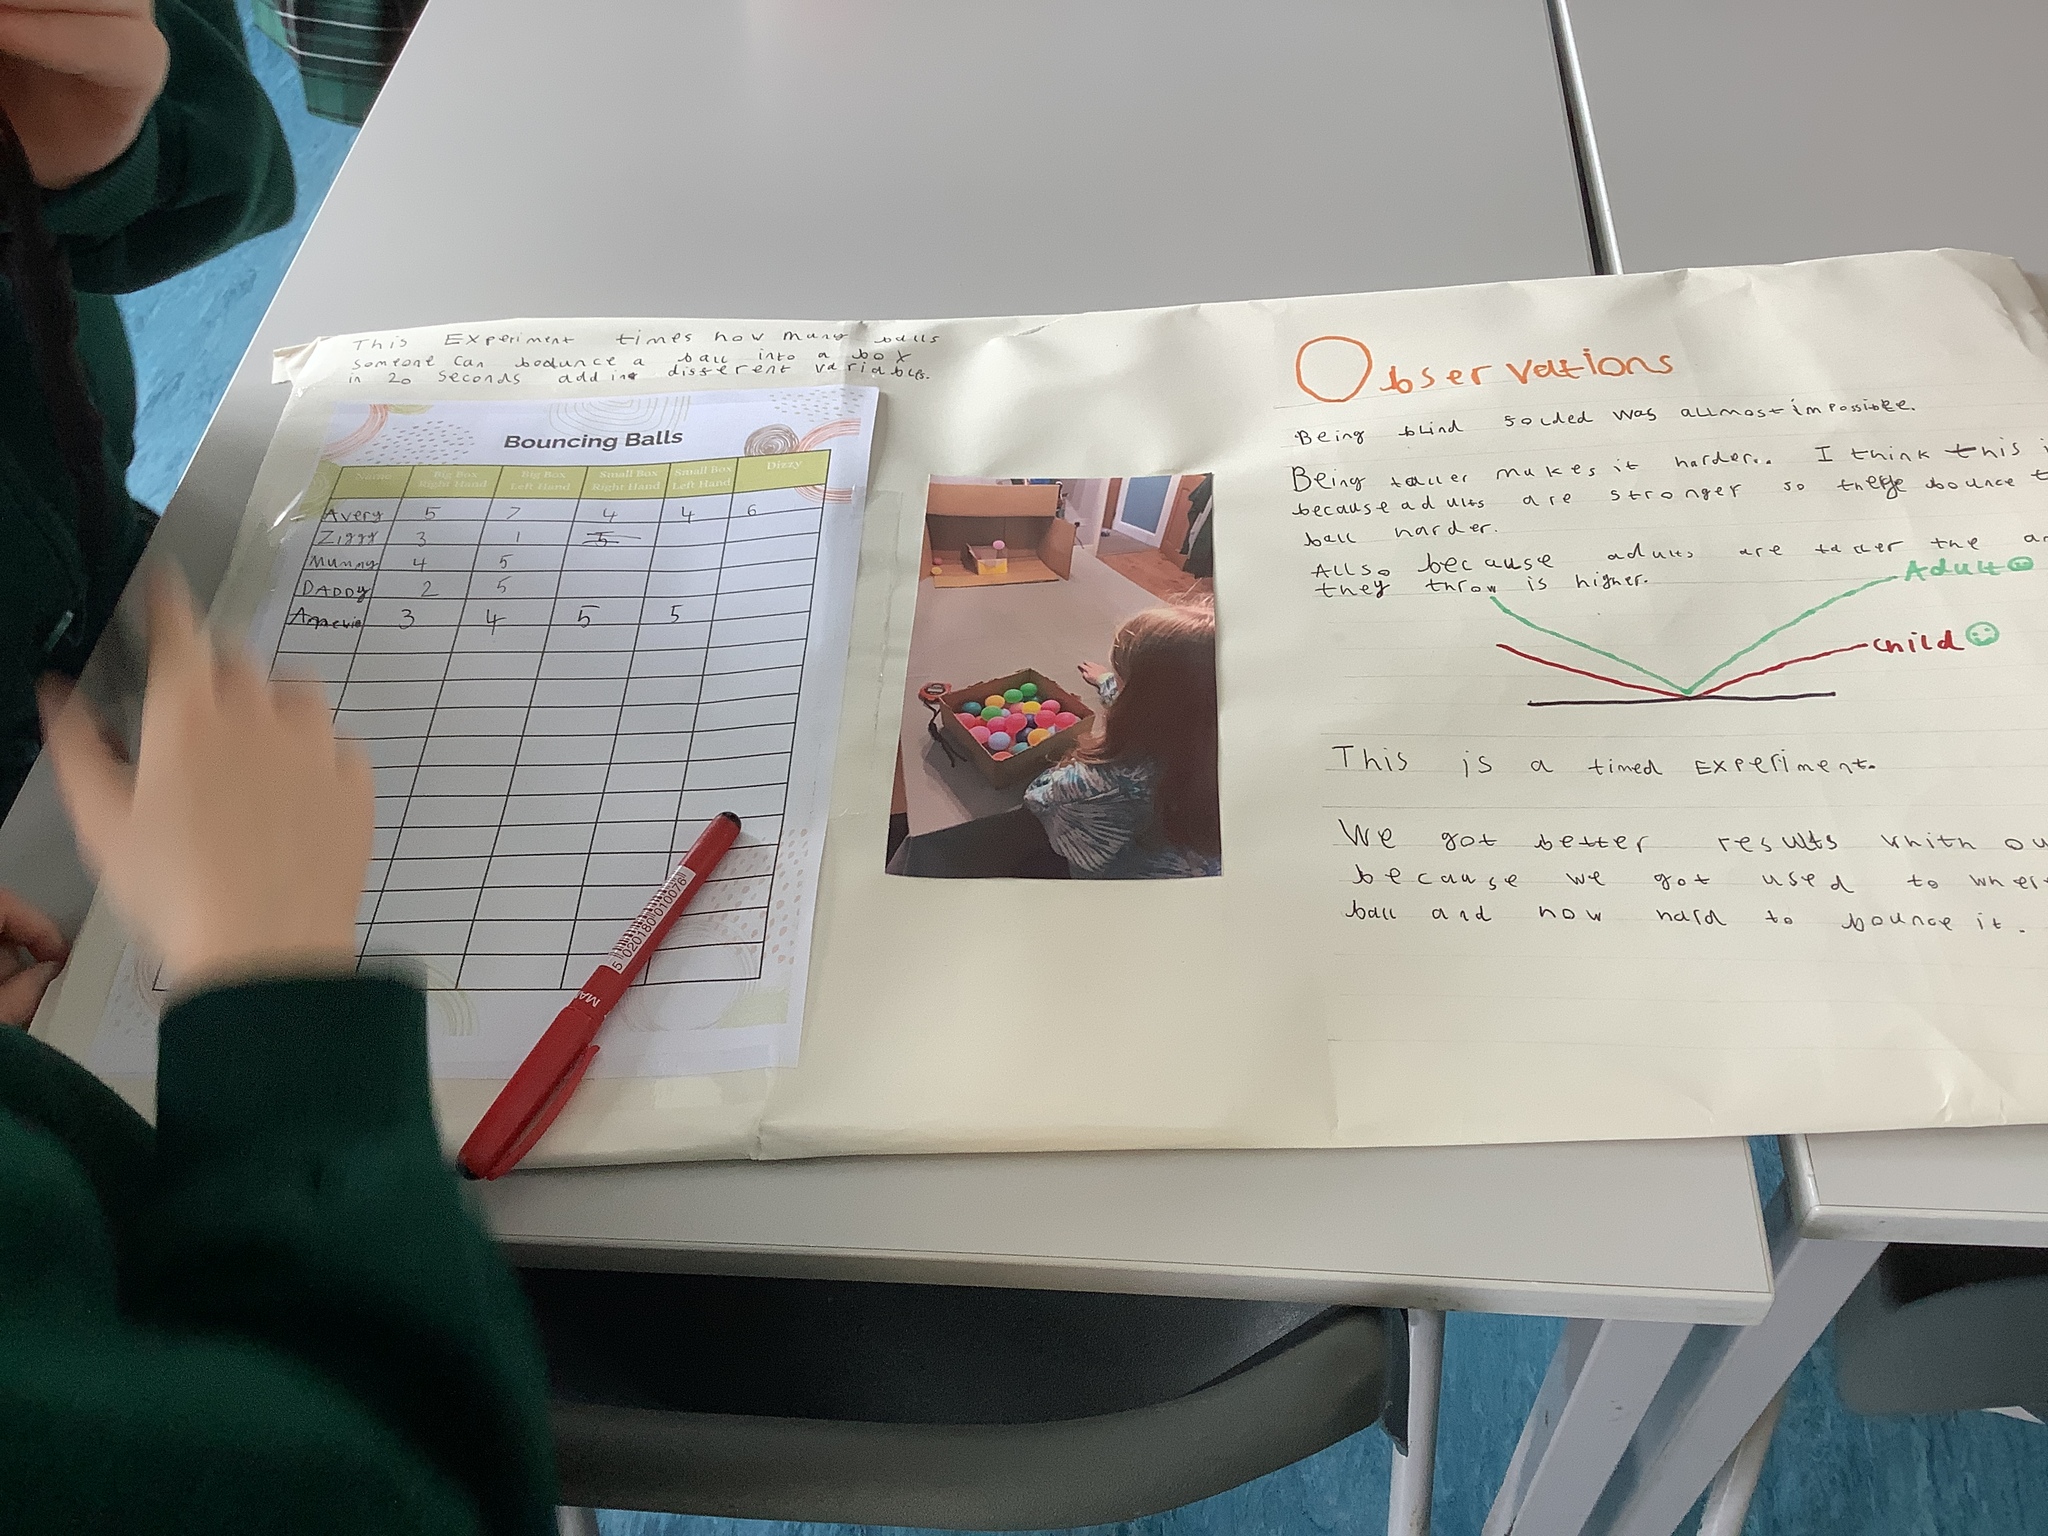 This Experiment times how many balls
someone can bodunce a ball into a box
in 20 seconds adding disserent variables.
Bouncing Balls
Name Big Box Right Hand Big Box Left Hand Small Box Right Hand Small Box Left Hand Dizzy
Avery 5 7 4 4 6
Ziggy 3 1 5
Mummy 4 5
DADDY 2 5
3 4 5 5
5 020180 010076
MA
Observations
Being blind solded was allmost impossible.
Being taller makes it harder.. I think this i
because adults are stronger so bounce t
ball harder.
Allso because adults are taller the an
they throw is higher.
Adult
child
This is a timed Experiment.
We got better results whith ou
because we got used to wher
ball and how hard to bounce it.